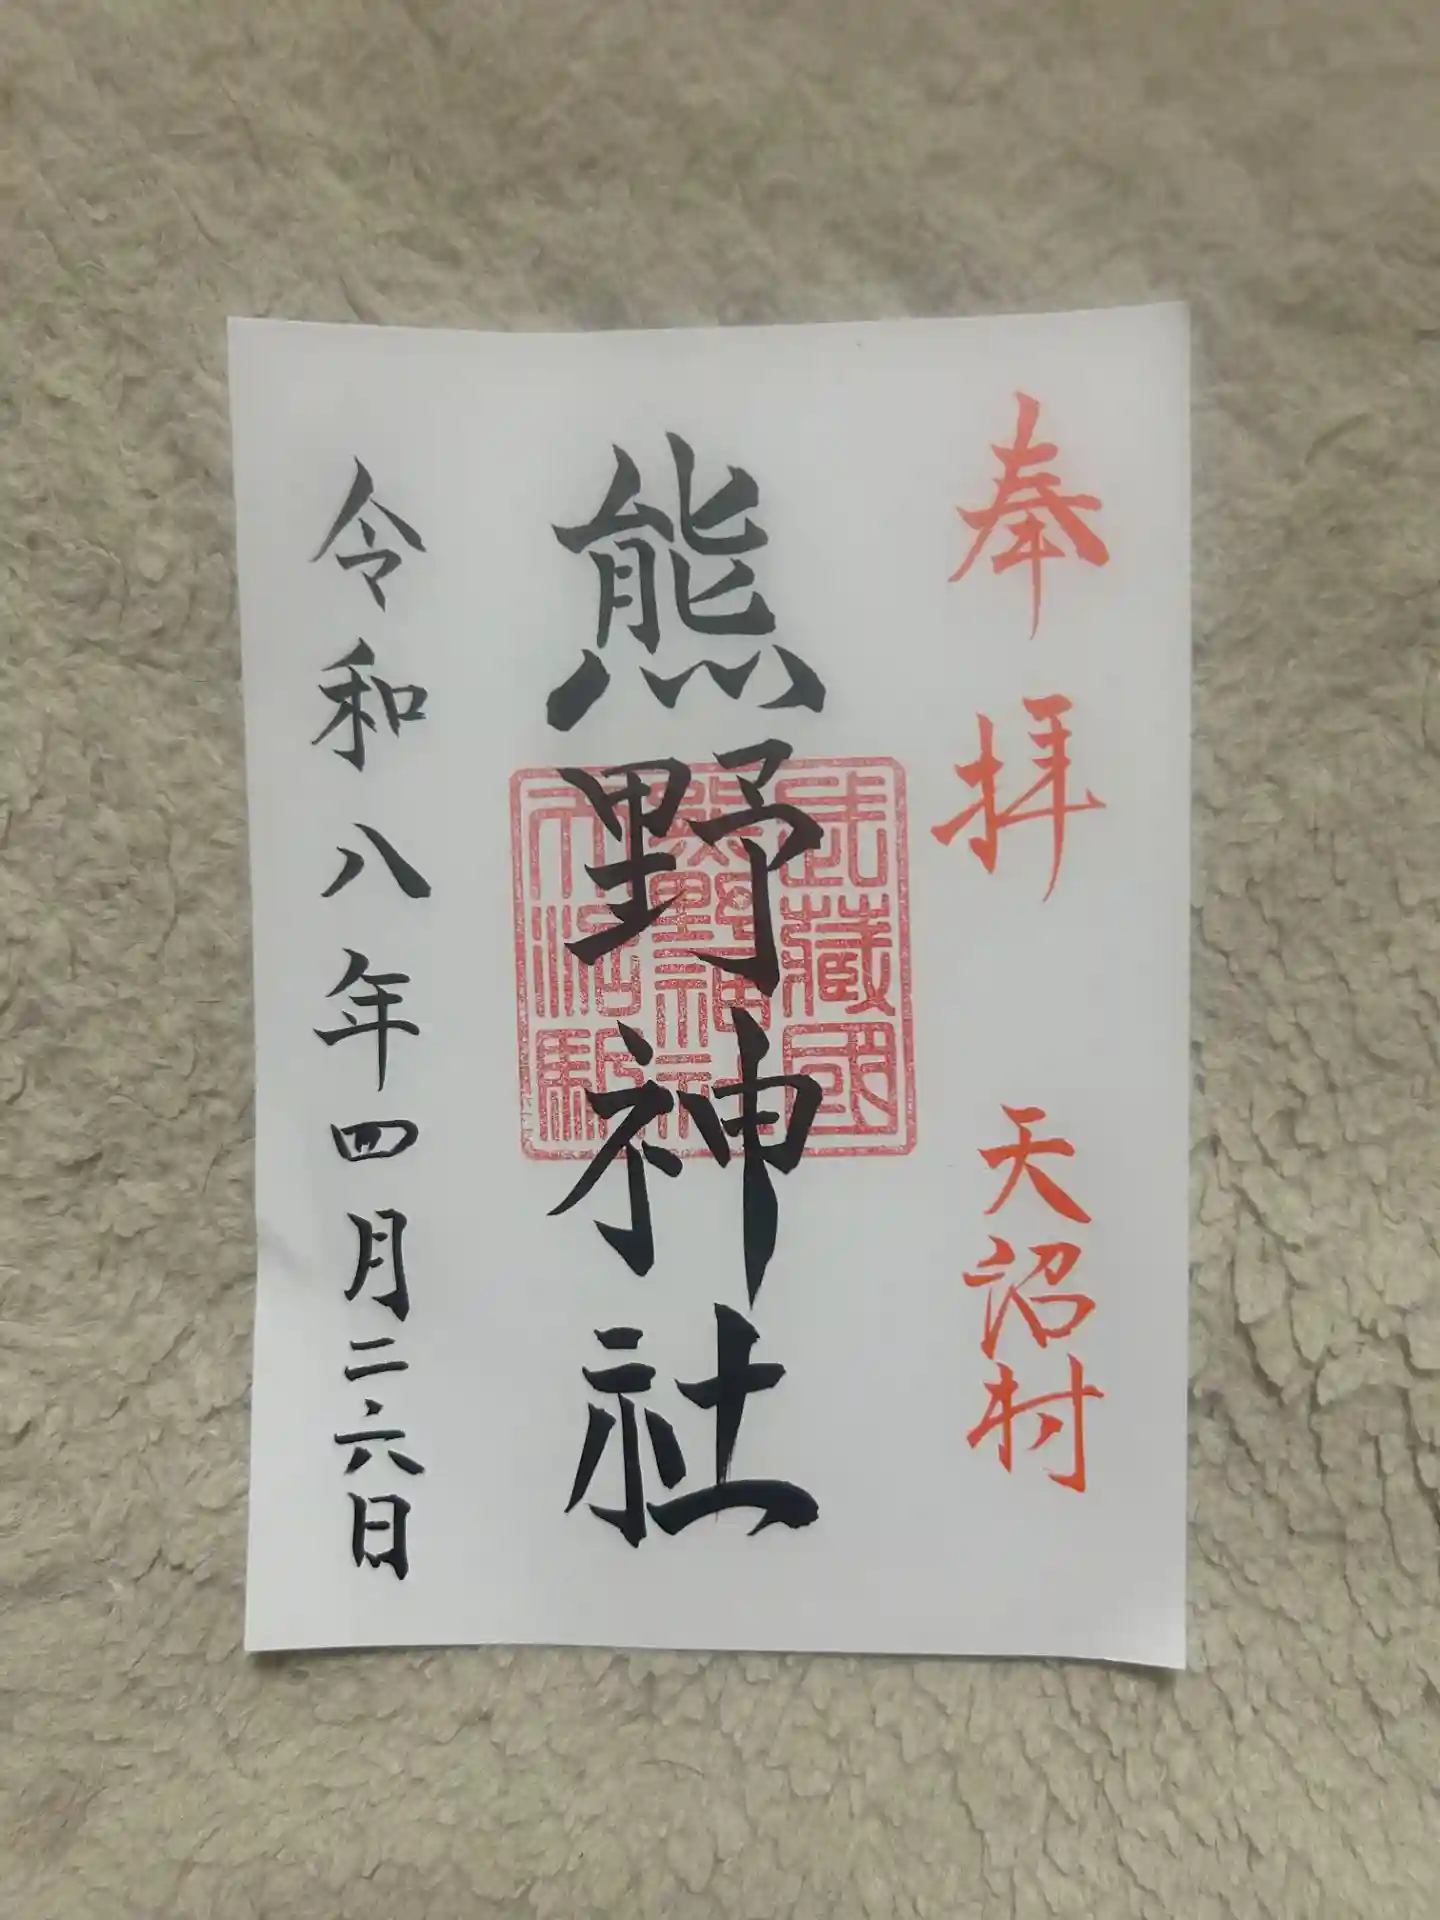 奉拝 天沼村
熊野神社
武藏國
熊野神社
令和八年四月二六日